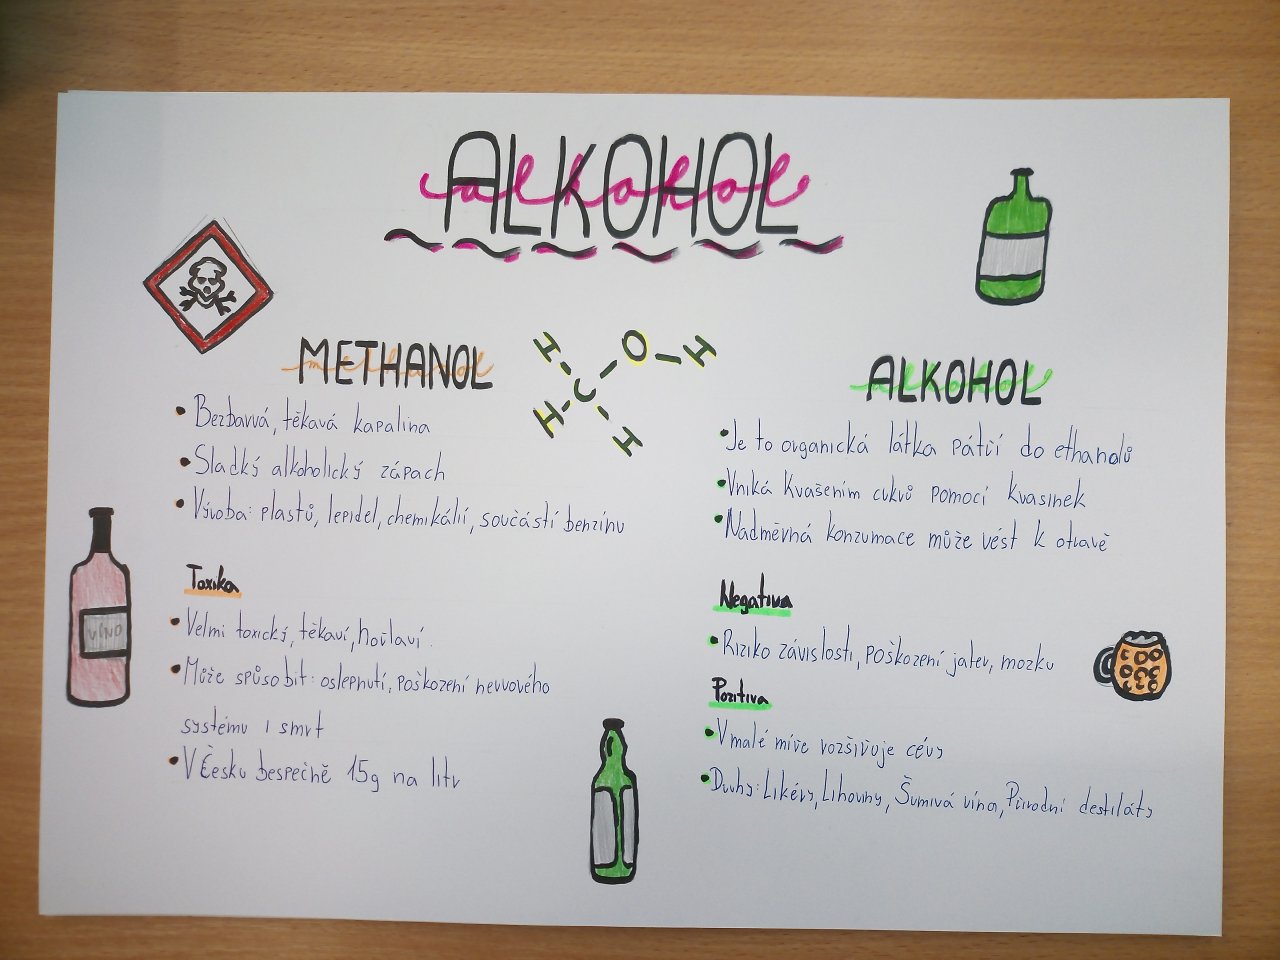 ALKOHOL
alkohol
METHANOL
methanol
H
O
H
C
H
H
• Bezbarvá, těkavá kapalina
• Sladký alkoholický zápach
• Výroba: plastů, lepidel, chemikálií, součástí benzínu
Toxika
• Velmi toxický, těkaví, hořlaví.
• Může způsobit: oslepnutí, poškození nervového
systému i smrt
• V Česku bespečně 15g na litr
VÍNO
ALKOHOL
alkohol
• Je to organická látka pátří do ethanolů
• Vniká kvašením cukrů pomocí kvasinek
• Nadměrná konzumace může vést k otravě
Negativa
• Riziko závislosti, poškození jater, mozku
Pozitiva
• V malé míře rozšiřuje cévy
• Druhy: Likéry, Lihoviny, Šumivá vína, Přírodní destiláty